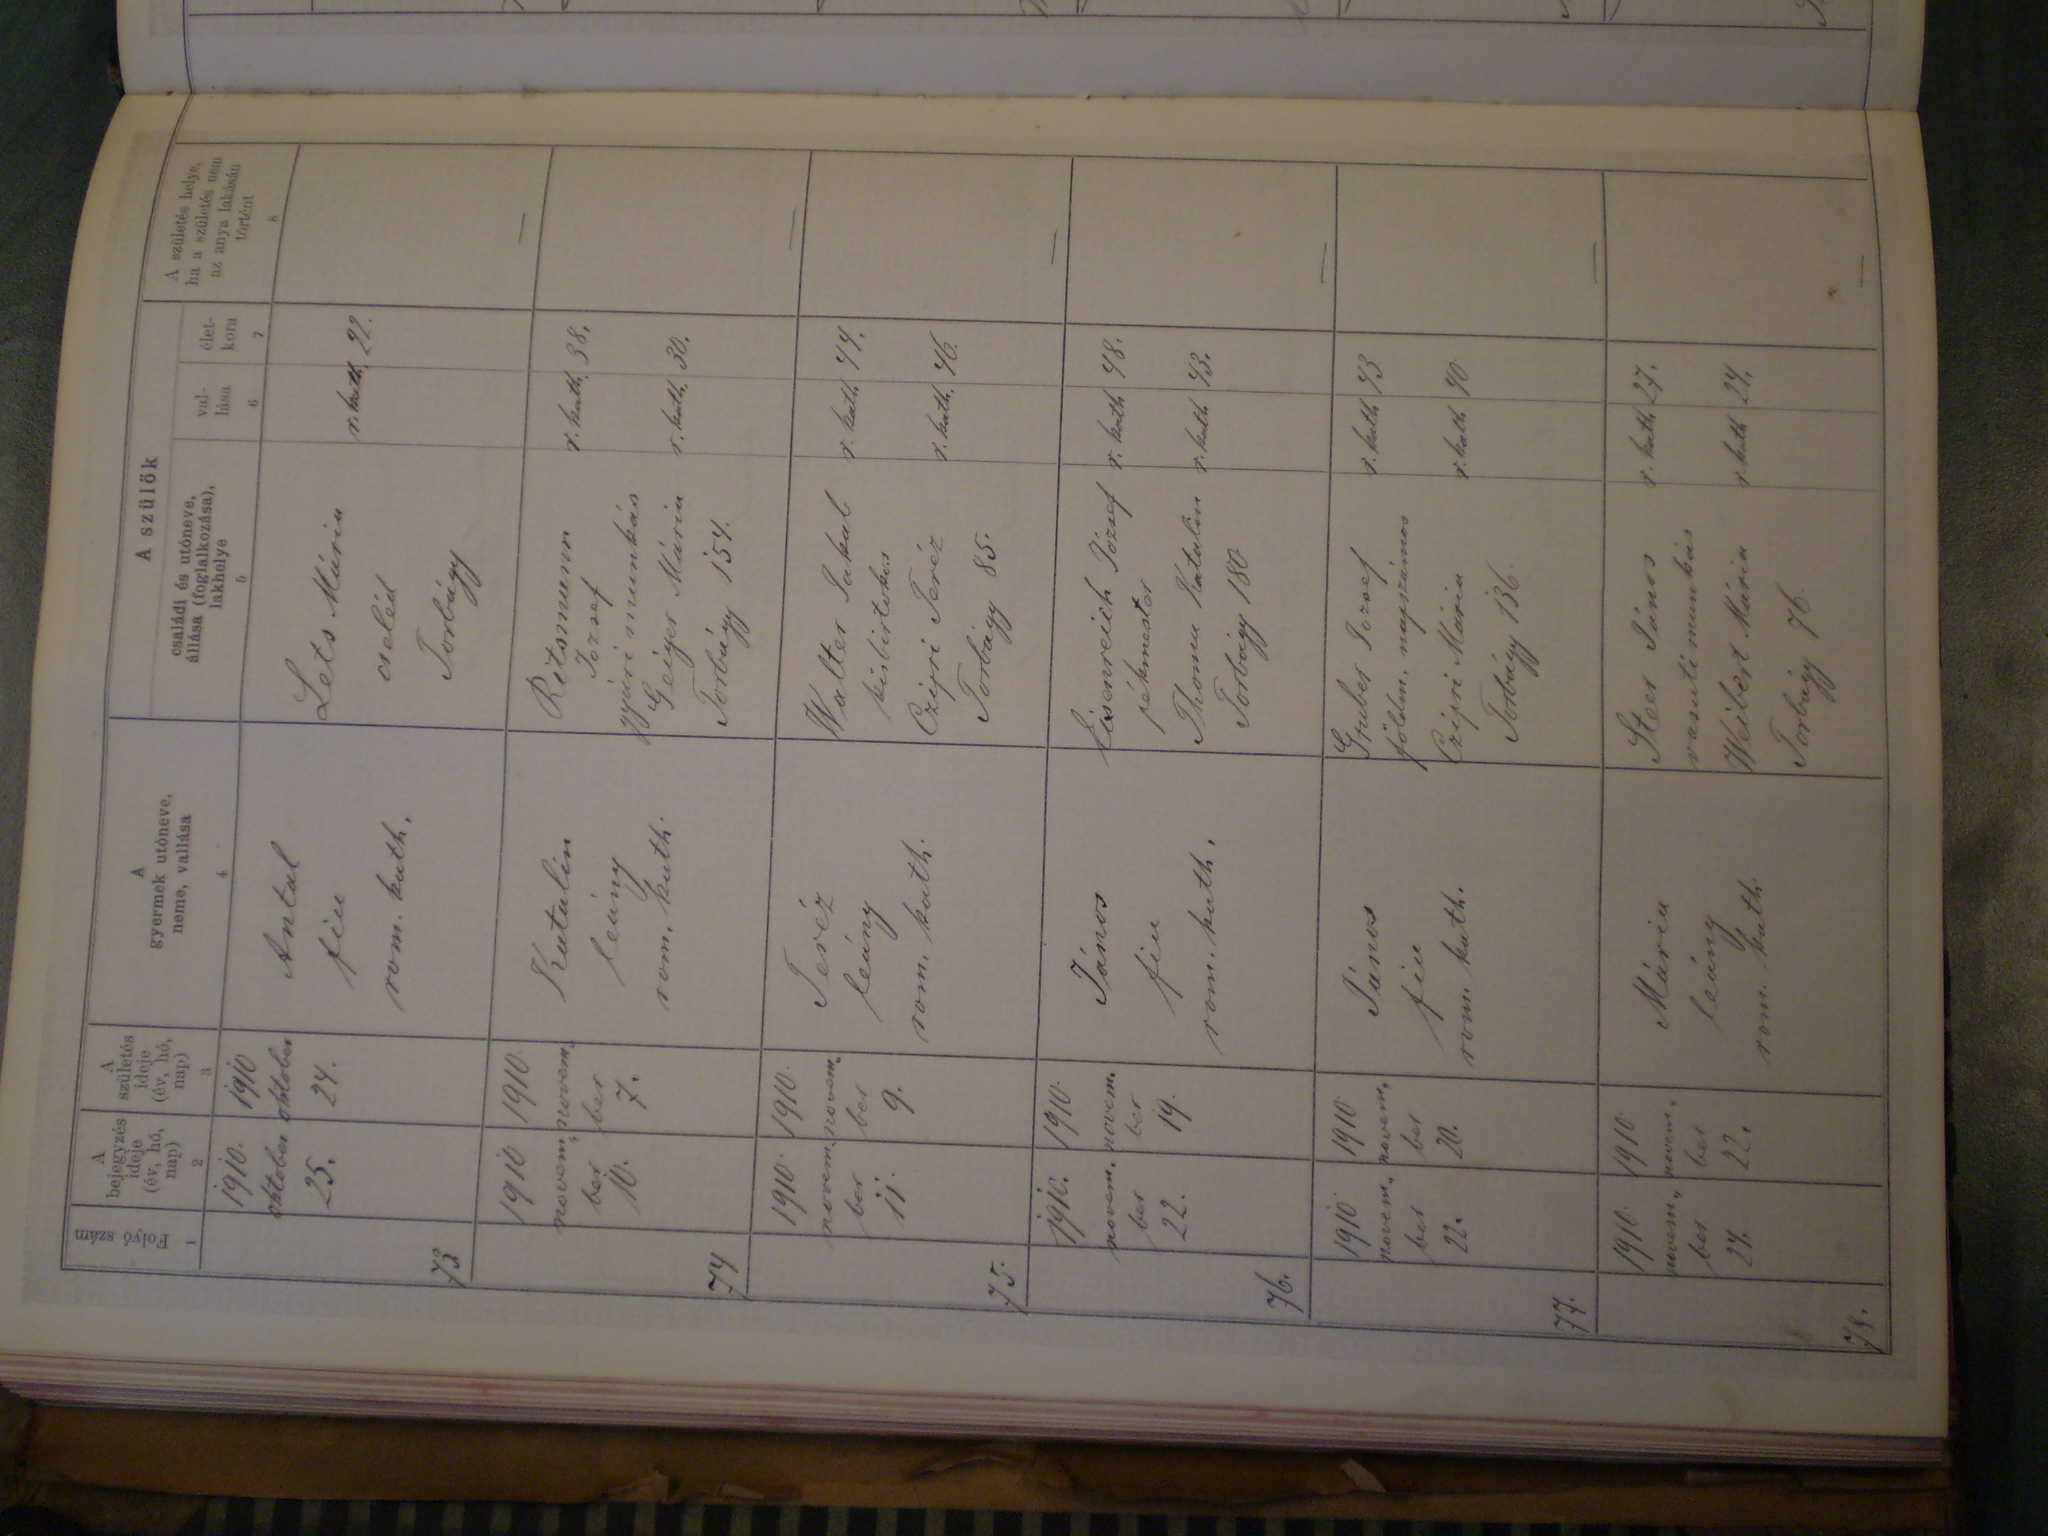 A szülők
Folyó szám
A bejegyzés ideje (év, hó, nap)
A születés ideje (év, hó, nap)
A gyermek utóneve, neme, vallása
családi és utóneve, állása (foglalkozása), lakhelye
vallása
életkora
A születés helye, ha a születés nem az anya lakásán történt
1 2 3 4 5 6 7 8
73
1910.
október
25.
1910
október
24.
Antal
fiu
rom. kath.
Lets Mária
cseléd
Torbágy
r. kath. 22.
74
1910
novem,
ber
10.
1910.
novem,
ber
7.
Katalin
leány
rom. kath.
Ritsmann
József
gyári munkás
Geiger Mária
Torbágy 154.
r. kath. 38.
r. kath. 30.
—
75.
1910.
novem.
ber
11.
1910.
novem.
ber
9.
Teréz
leány
rom. kath.
Walter Jakab
kisbirtokos
Czipri Teréz
Torbágy 85.
r. kath 44.
r. kath. 46.
—
76.
1910.
novem.
ber
22.
1910.
novem.
ber
19.
János
fiu
rom. kath.
Eisenreich József
pékmester
Thoma Katalin
Torbágy 180
r. kath 48.
r. kath 43.
—
77.
1910
novem.
ber
22.
1910
novem,
ber
20.
János
fiu
rom. kath.
Gruber József
földm. napszámos
Czipri Mária
Torbágy 136.
r. kath 43
r. kath 40
—
78.
1910.
novem,
ber
24.
1910
novem,
ber
22.
Mária
leány
rom. kath.
Steer János
vasuti munkás
Weibert Mária
Torbágy 76.
r. kath 27.
r. kath 24.
—